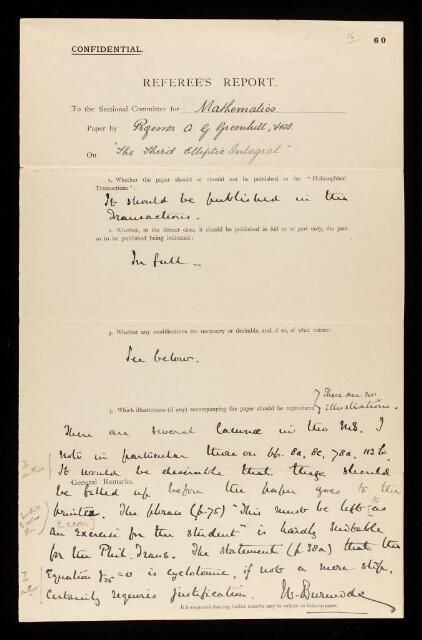 16
60
CONFIDENTIAL.
REFEREE'S REPORT.
To the Sectional Committee for Mathematics
Paper by Professor A. G. Greenhill, FRS.
On "The Third Elliptic Integral"
1. Whether the paper should or should not be published in the "Philosophical
Transactions":
It should be published in the
Transactions.
2. Whether, in the former case, it should be published in full or in part only, the part
so to be published being indicated:
In full —
3. Whether any modifications are necessary or desirable, and, if so, of what nature:
See below.
4. Which illustrations (if any) accompanying the paper should be reproduced
There are no
illustrations.
There are several lacunae in this MS. I
note in particular those on pp. 8a, 8c, 78a, 113b.
It would be desirable that these should
General Remarks.
be filled up before the paper goes to the
printer. The phrase (p. 75) "This must be left as
an exercise for the student" is hardly suitable
for the Phil. Trans. The statement (p. 38a) that the
Equation = 0 is cyclotomic, if not a mere slip,
certainly requires justification. W. Burnside
It is requested that any further remarks may be written on foolscap paper.